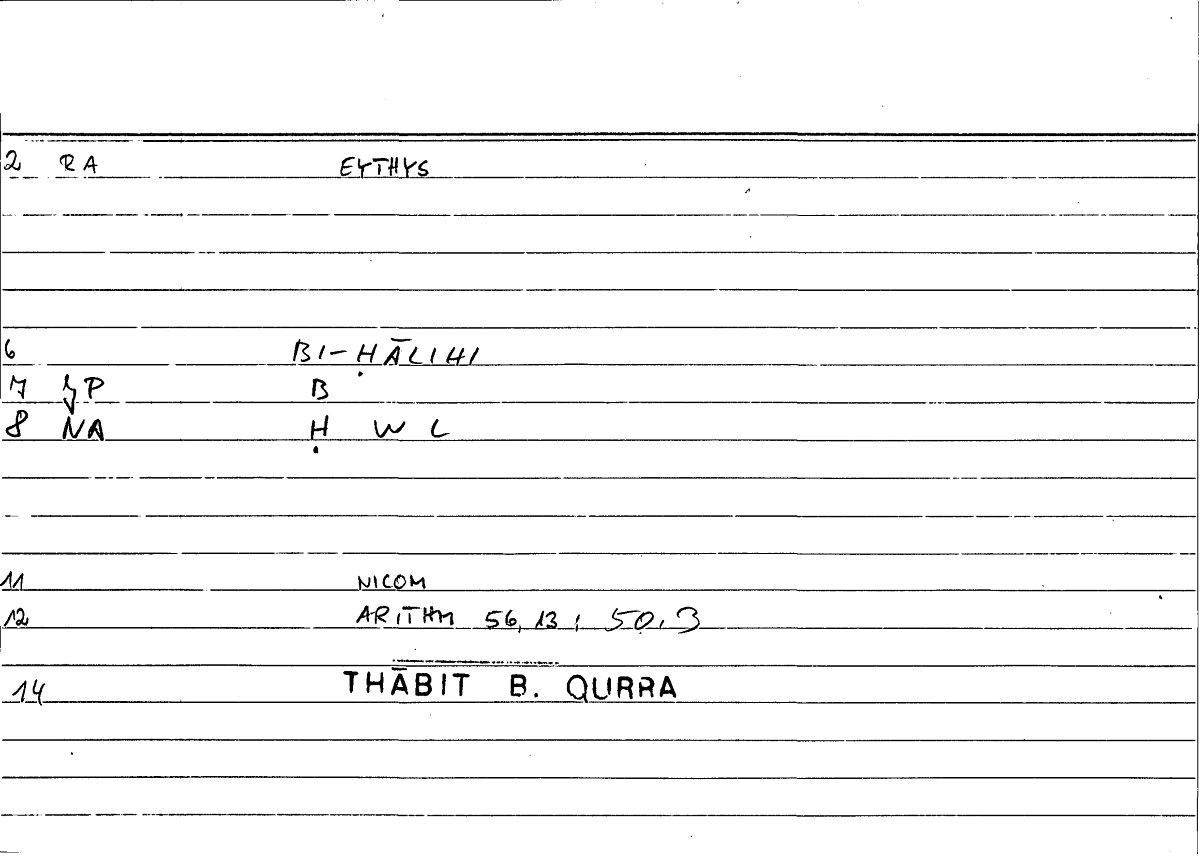 2 RA EYTHYS
6 BI-ḤĀLIHI
7 P B
8 NA Ḥ W L
11 NICOM
12 ARITHM 56,13 ; 50,3
14 THĀBIT B. QURRA